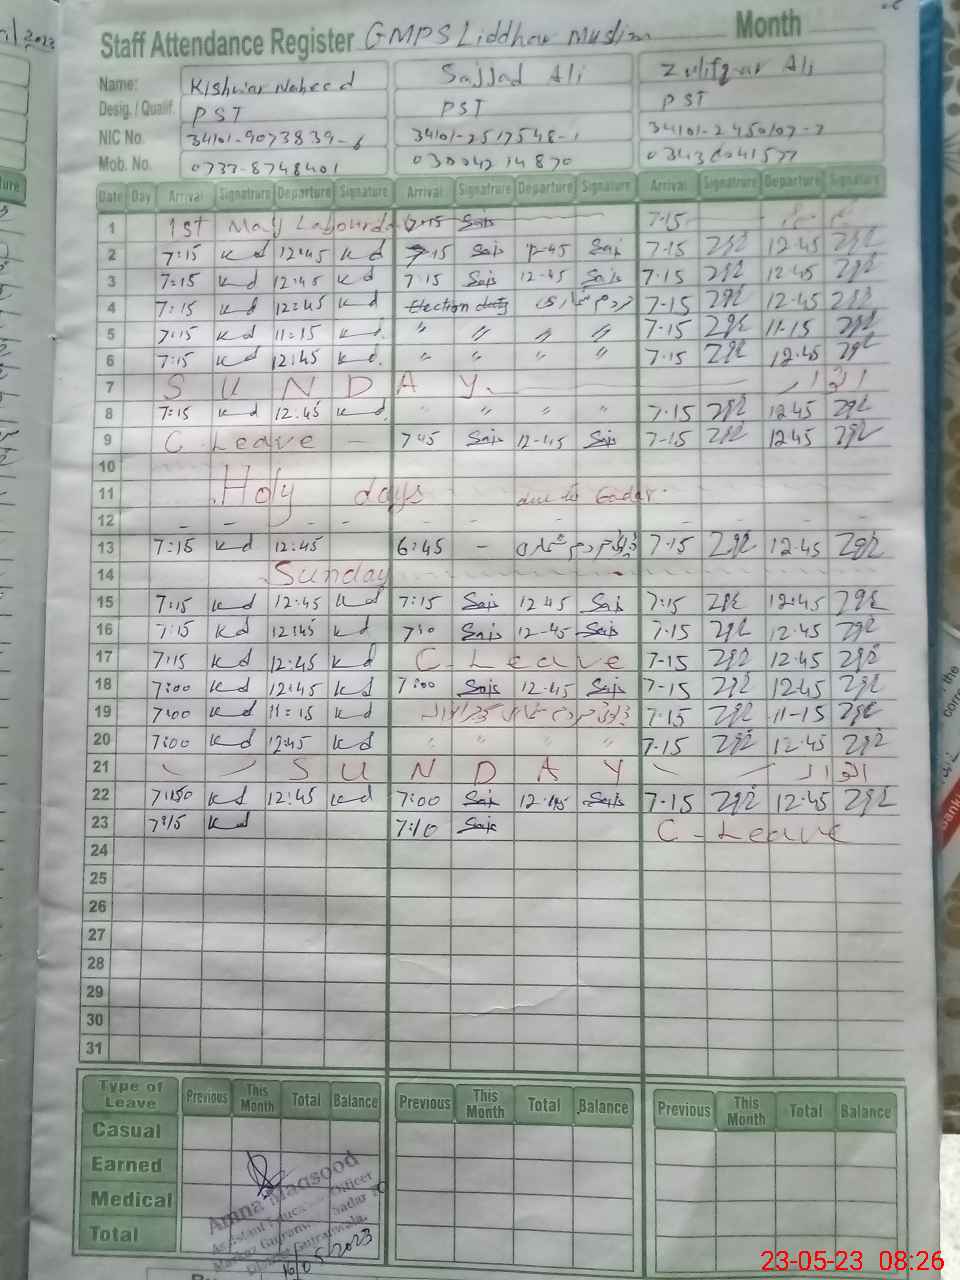 Staff Attendance Register GMPS Liddhar Muslim Month
Name: Kishwar Naheed Sajjad Ali Zulifqar Ali
Desig. / Qualif. PST PST PST
NIC No. 34101-9073839-6 34101-2517548-1
Mob. No. 03004214870
Date Day Arrival Signatrure Departure Signature Arrival Signatrure Departure Signature Arrival Signatrure Departure Signature
1 1st May Labourday 7:15 Saj 7-15
2 7:15 Kd 12:45 Kd 7:15 Saj 12-45 Saj 7-15 12-45
3 7:15 Kd 12:45 Kd 7:15 Saj 12-45 Saj 7-15 12-45
4 7:15 Kd 12:45 Kd Election duty مردم شماری 7-15 12-45
5 7:15 Kd 11:15 Kd " " " " 7-15 11-15
6 7:15 Kd 12:45 Kd " " " " 7-15 12-45
7 S U N D A Y
8 7:15 Kd 12:45 Kd " " " " 7-15 12-45
9 C. Leave 7:45 Saj 12-45 Saj 7-15 12-45
10
11 Holy days due to
12
13 7:15 Kd 12:45 6:45 - مردم شماری 7-15 12-45
14 Sunday
15 7:15 Kd 12:45 Kd 7:15 Saj 12-45 Saj 7-15 12-45
16 7:15 Kd 12:45 Kd Saj 12-45 Saj 7-15 12-45
17 7:15 Kd 12:45 Kd C-Leave 7-15 12-45
18 7:00 Kd 12:45 Kd 7:00 Saj 12-45 Saj 7-15 12-45
19 7:00 Kd 11:15 Kd مردم شماری 7-15 11-15
20 7:00 Kd 12:45 Kd " " " " 7-15 12-45
21 S U N D A Y
22 Kd 12:45 Kd 7:00 Saj 12-45 Saj 7-15 12-45
23 7:15 Kd 7:10 Saj C-Leave
24
25
26
27
28
29
30
31
Type of Leave Previous This Month Total Balance Previous This Month Total Balance Previous This Month Total Balance
Casual
Earned
Medical
Total
Amna Maqsood
Assistant Education Officer
16/05/2023
23-05-23 08:26